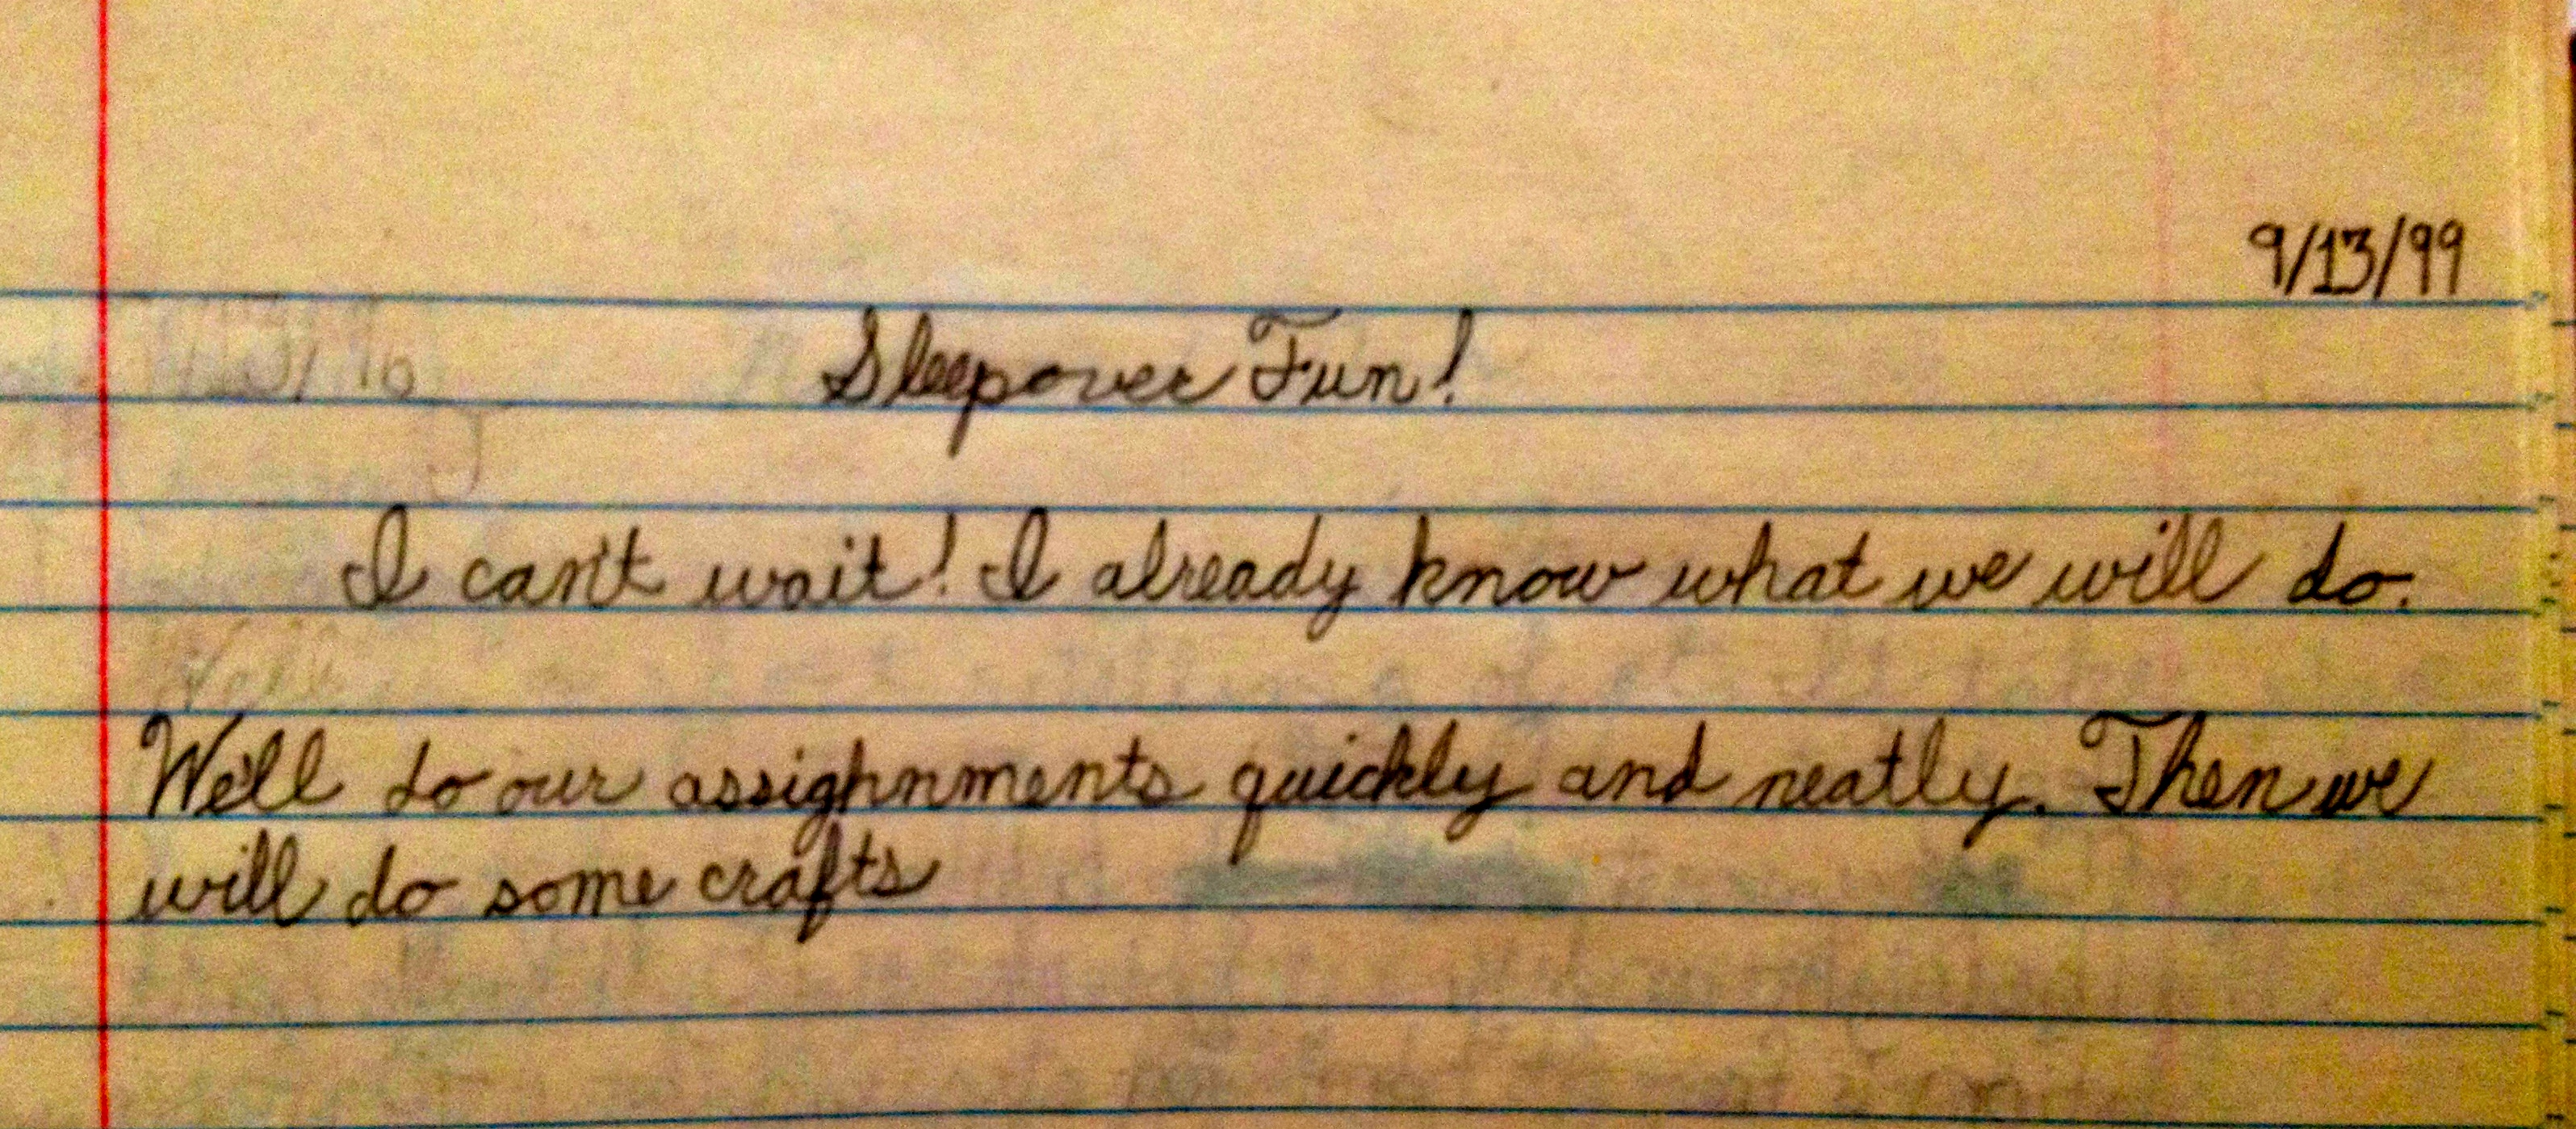 9/13/99
Sleepover Fun!
I can't wait! I already know what we will do.
We'll do our assighnments quickly and neatly. Then we
will do some crafts